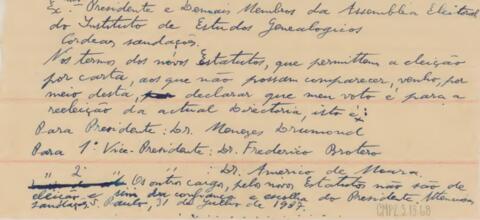 Ex.mos Presidente e Demais Membros da Assemblea Eleitoral
do Instituto de Estudos Genealogicos
Cordeaes saudações.
Nos termos dos nóvos Estatutos, que permittem a eleição
por carta, aos que não possam comparecer, venho, por
meio desta, declarar que meu voto é para a
reeleição da actual Directoria, isto é:
Para Presidente: Dr. Menezes Drumond
Para 1º Vice-Presidente: Dr. Frederico Brotero
" 2º " " : Dr. Americo de Moura.
Os outros cargos, pelos novos Estatutos não são de
eleição e sim da confiança e escolha do Presidente. Attenciosas
saudações, S. Paulo, 31 de Julho de 1937.